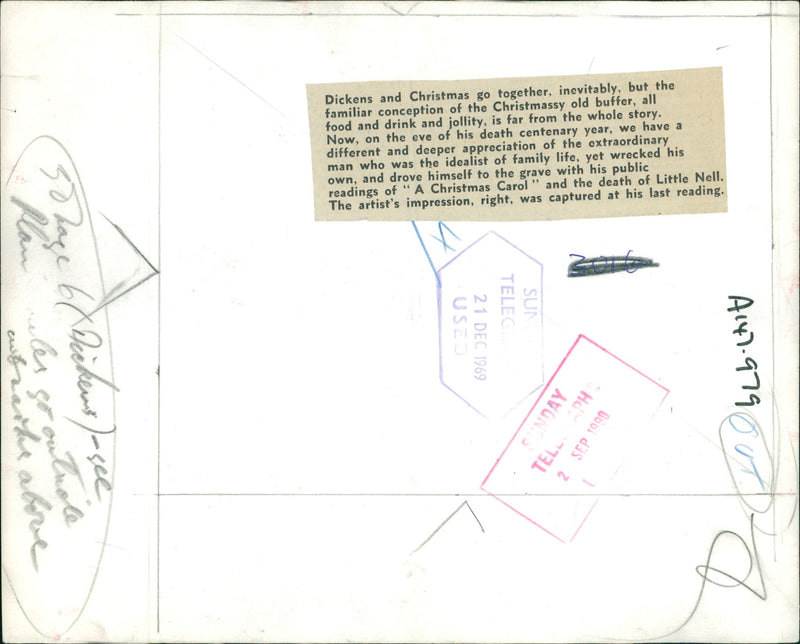 Dickens and Christmas go together, inevitably, but the
familiar conception of the Christmassy old buffer, all
food and drink and jollity, is far from the whole story.
Now, on the eve of his death centenary year, we have a
different and deeper appreciation of the extraordinary
man who was the idealist of family life, yet wrecked his
own, and drove himself to the grave with his public
readings of " A Christmas Carol " and the death of Little Nell.
The artist's impression, right, was captured at his last reading.
SUN
TELEG
21 DEC 1969
USED
SUNDAY
TEL APH
2 SEP 1990
1
A147-979
OUT
page 6 (Dickens) - see
Plan rules go outside
above